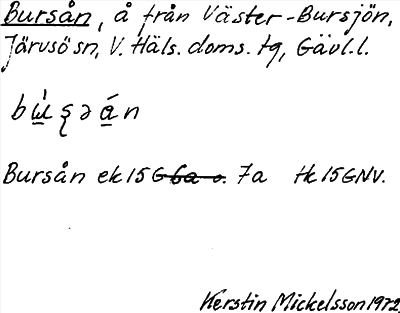 Bursån, å från Väster-Bursjön,
Järvsö sn, V. Häls. doms. tg, Gävl.l.
bɯ̀ʂə án
Bursån ek 15G 6a o. 7a tk 15GNV.
Kerstin Mickelsson 1972.